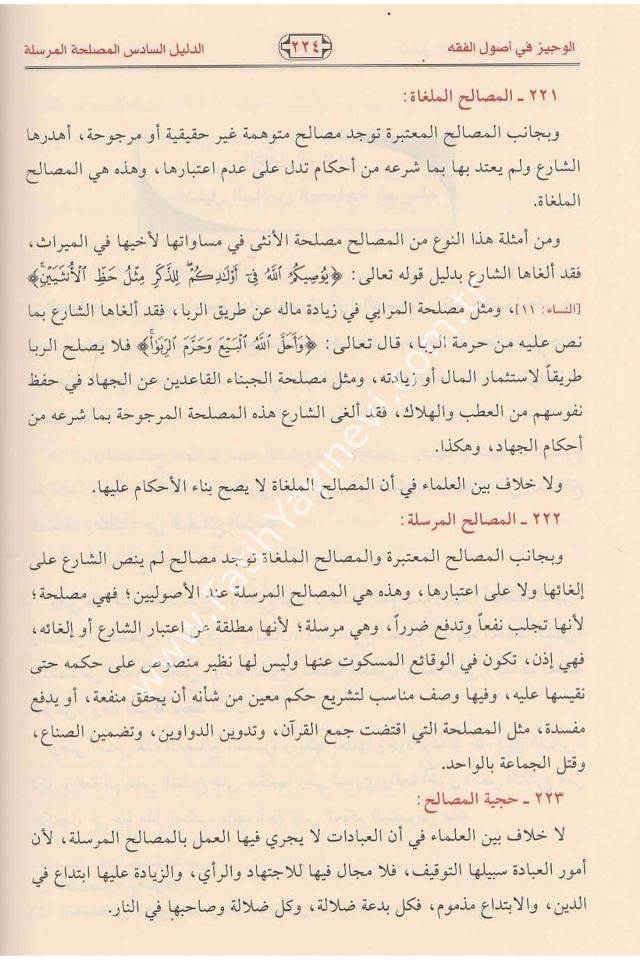 الوجيز في أصول الفقه
٢٢٤
الدليل السادس المصلحة المرسلة
٢٢١ ـ المصالح الملغاة:
وبجانب المصالح المعتبرة توجد مصالح متوهمة غير حقيقية أو مرجوحة، أهدرها
الشارع ولم يعتد بها بما شرعه من أحكام تدل على عدم اعتبارها، وهذه هي المصالح
الملغاة.
ومن أمثلة هذا النوع من المصالح مصلحة الأنثى في مساواتها لأخيها في الميراث،
فقد ألغاها الشارع بدليل قوله تعالى: ﴿يُوصِيكُمُ اللَّهُ فِي أَوْلَادِكُمْ لِلذَّكَرِ مِثْلُ حَظِّ الْأُنثَيَيْنِ﴾
[النساء: ١١]، ومثل مصلحة المرابي في زيادة ماله عن طريق الربا، فقد ألغاها الشارع بما
نص عليه من حرمة الربا، قال تعالى: ﴿وَأَحَلَّ اللَّهُ الْبَيْعَ وَحَرَّمَ الرِّبَوٰا﴾ فلا يصلح الربا
طريقاً لاستثمار المال أو زيادته، ومثل مصلحة الجبناء القاعدين عن الجهاد في حفظ
نفوسهم من العطب والهلاك، فقد ألغى الشارع هذه المصلحة المرجوحة بما شرعه من
أحكام الجهاد، وهكذا.
ولا خلاف بين العلماء في أن المصالح الملغاة لا يصح بناء الأحكام عليها.
٢٢٢ ـ المصالح المرسلة:
وبجانب المصالح المعتبرة والمصالح الملغاة توجد مصالح لم ينص الشارع على
إلغائها ولا على اعتبارها، وهذه هي المصالح المرسلة عند الأصوليين؛ فهي مصلحة؛
لأنها تجلب نفعاً وتدفع ضرراً، وهي مرسلة؛ لأنها مطلقة عن اعتبار الشارع أو إلغائه،
فهي إذن، تكون في الوقائع المسكوت عنها وليس لها نظير منصوص على حكمه حتى
نقيسها عليه، وفيها وصف مناسب لتشريع حكم معين من شأنه أن يحقق منفعة، أو يدفع
مفسدة، مثل المصلحة التي اقتضت جمع القرآن، وتدوين الدواوين، وتضمين الصناع،
وقتل الجماعة بالواحد.
٢٢٣ ـ حجية المصالح:
لا خلاف بين العلماء في أن العبادات لا يجري فيها العمل بالمصالح المرسلة، لأن
أمور العبادة سبيلها التوقيف، فلا مجال فيها للاجتهاد والرأي، والزيادة عليها ابتداع في
الدين، والابتداع مذموم، فكل بدعة ضلالة، وكل ضلالة وصاحبها في النار.
www.FasihYayinevi.com.tr